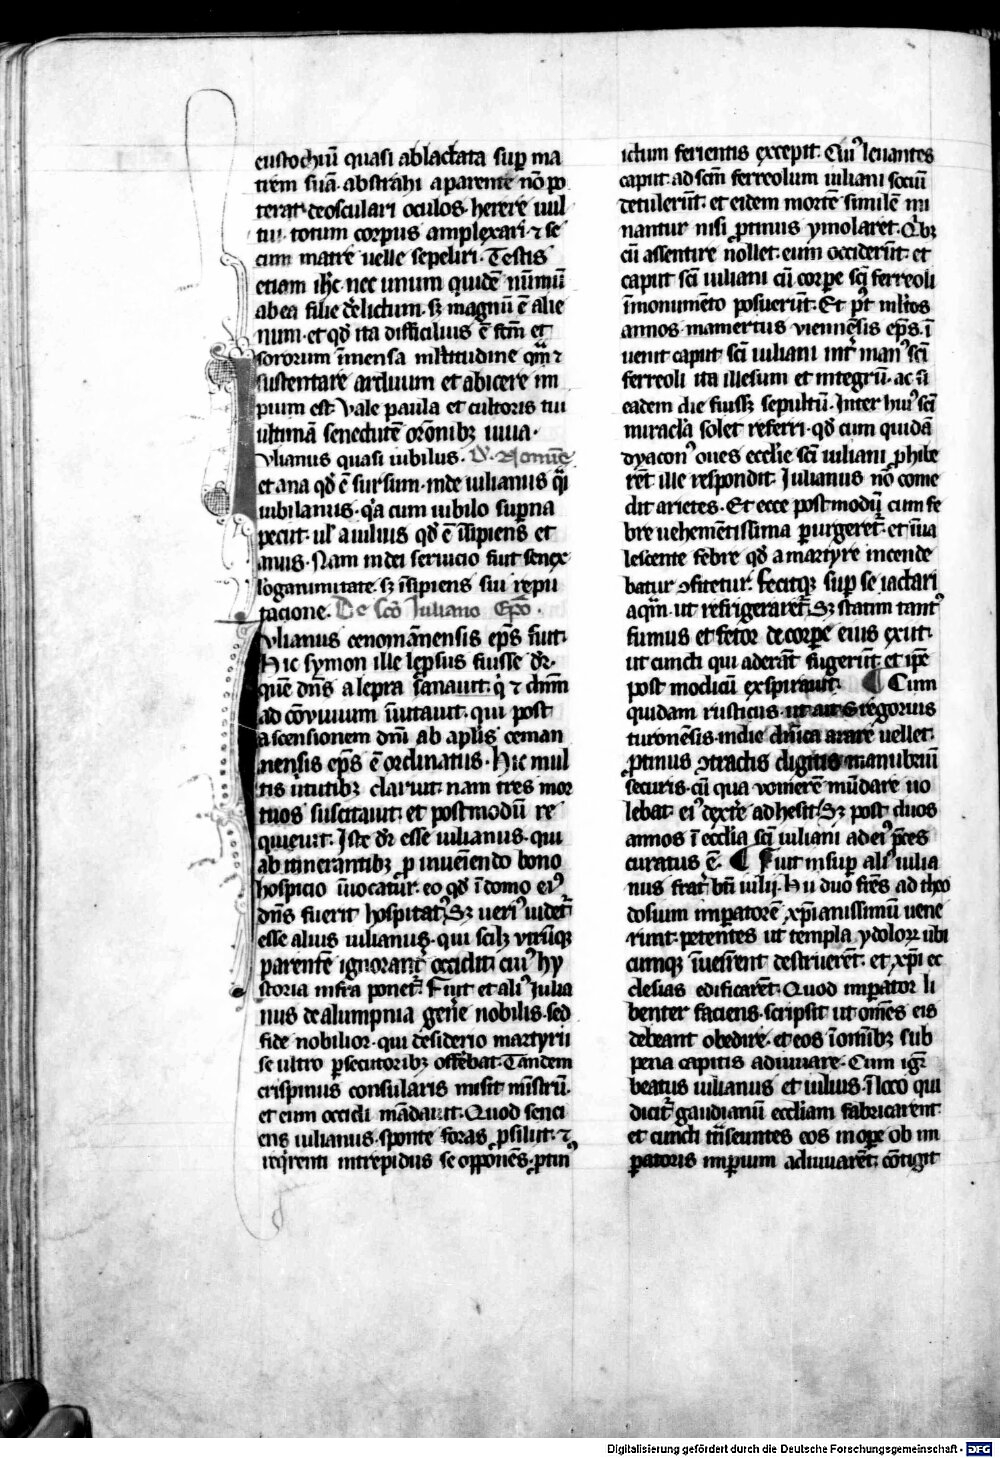 eustochiū quasi ablactata sup̱ ma
trem suā. abstrahi a parente nō po
terat. deosculari oculos. herere uul
tui. totum corpus amplexari. ⁊ se
cum matre uelle sepeliri. Testis
etiam ih̄c nec unum quidē nūmū
ab ea filie d̓elictum. sꝫ magnū ē alie
num. et qd̓ ita difficilius ē fr̄m et
sororum īmensa mltitudine qm̄ ⁊
sustentare arduum et abicere im
pium est. Vale paula et cultoris tui
ultimā senectutē orōnibꝫ iuua.
Vlianus quasi iubilus. D̓. noīe
et ana qd̓ ē sursum. inde iulianus q̄i
iubilanus. q̓a cum iubilo sup̱na
petiit. ul̓ a iulius qd̓ ē īsipiens et
anus. Nam in dei seruicio fuit senex
lōganimitate. sꝫ īsipiens sui repu
tacione. De scō Iuliano Ep̄o.
Vlianus cenomānensis ep̄s fuit.
Hic symon ille lep̱sus fuisse d̓r.
quē dn̄s a lepra sanauit. q̓ ⁊ chr̄m
ad cōuiuium īuitauit. qui post
ascensionem dn̄i ab ap̄lis ceman
nensis ep̄s ē ordinatus. Hic mul
tis ūtutibꝫ claruit. nam tres mor
tuos suscitauit. et postmodū re
quieuit. Iste d̓r esse iulianus. qui
ab itinerantibꝫ ꝓ inueniendo bono
hospicio īuocatur. eo qd̓ ī domo ei᾿
dn̄s fuerit hospitat᾿. Sꝫ ueri᾿ uidet᷑
esse alius iulianus. qui scilꝫ utrūqꝫ
parentē ignorant᷑ occidit. cui᾿ hy
storia infra ponet᷑. Fuit et ali᾿ Iulia
nus de alumpnia gen̓e nobilis. sed
fide nobilior. qui desiderio martyrii
se ultro ꝑsecutoribꝫ offēbat. Tandem
crispinus consularis misit mīstrū.
et eum occidi mādauit. Quod senci
ens iulianus. sponte foras ꝓsiliit. ⁊
req̓renti intrepidus se opponēs. ꝓtin᾿
ictum ferientis excepit. Cui᾿ leuantes
caput. ad scm̄ ferreolum iuliani sociū
detulerūt. et eidem mortē similē mi
nantur nisi ꝓtinus ymolaret. Q̓bꝫ
cū assentire nollet. eum occiderūt. et
caput scī iuliani cū corp̱e scī ferreoli
ī monumēto posuerūt. Et p᾿t ml̓tos
annos mamertus viennēsis ep̄s ī
uenit caput scī iuliani int̓ man᾿ scī
ferreoli ita illesum et integrū. ac si
eadem die fuissꝫ sepultū. Inter hui᾿ scī
miracla solet referri. qd̓ cum quidā
dyacon᾿ oues eccl̓ie scī iuliani ꝓhibe
rēt ille respondit. Iulianus nō come
dit arietes. Et ecce postmodū cum fe
bre uehemētissima ꝑurgeret᷑. et īua
lescente febre qd̓ a martyre incende
batur ꝯfitetur. fecitqꝫ sup̱ se iactari
aq̄m. ut refrigeraret᷑. Sꝫ statim tant᾿
fumus et fetor de corp̱e eius exiit.
ut cuncti qui aderāt fugerūt. et ip̄e
post modicū exspirauit. ¶ Cum
quidam rusticus. ut ait Gregorius
turonēsis. in die dn̄ica arare uellet.
ꝓtinus ꝯtractis digitis manubriū
securis. cū qua vomerē mūdare uo
lebat. ei᾿ dext̓e adhesit. Sꝫ post duos
annos ī eccl̄ia scī iuliani ad ei᾿ p̄ces
curatus ē. ¶ Fuit insup̱ ali᾿ iulia
nus frat᷑ bt̄i iulij. Hii duo fr̄es ad theo
dosium imp̱atorē xp̄ianissimū uene
runt. petentes ut templa ydolorꝝ ubi
cumqꝫ īuenirent destruerēt. et xp̄i ec
clesias edificarēt. Quod imp̱ator li
benter faciens. scripsit ut om̄es eis
debeant obedire. et eos ī om̄ibꝫ sub
pena capitis adiuuare. Cum igr̄
beatus iulianus et iulius. ī loco qui
dicit᷑ gaudianū eccl̄iam fabricarent.
et cuncti tn̄seuntes eos in op̱e ob im
p̱atoris imp̱ium adiuuarēt. cōtigit